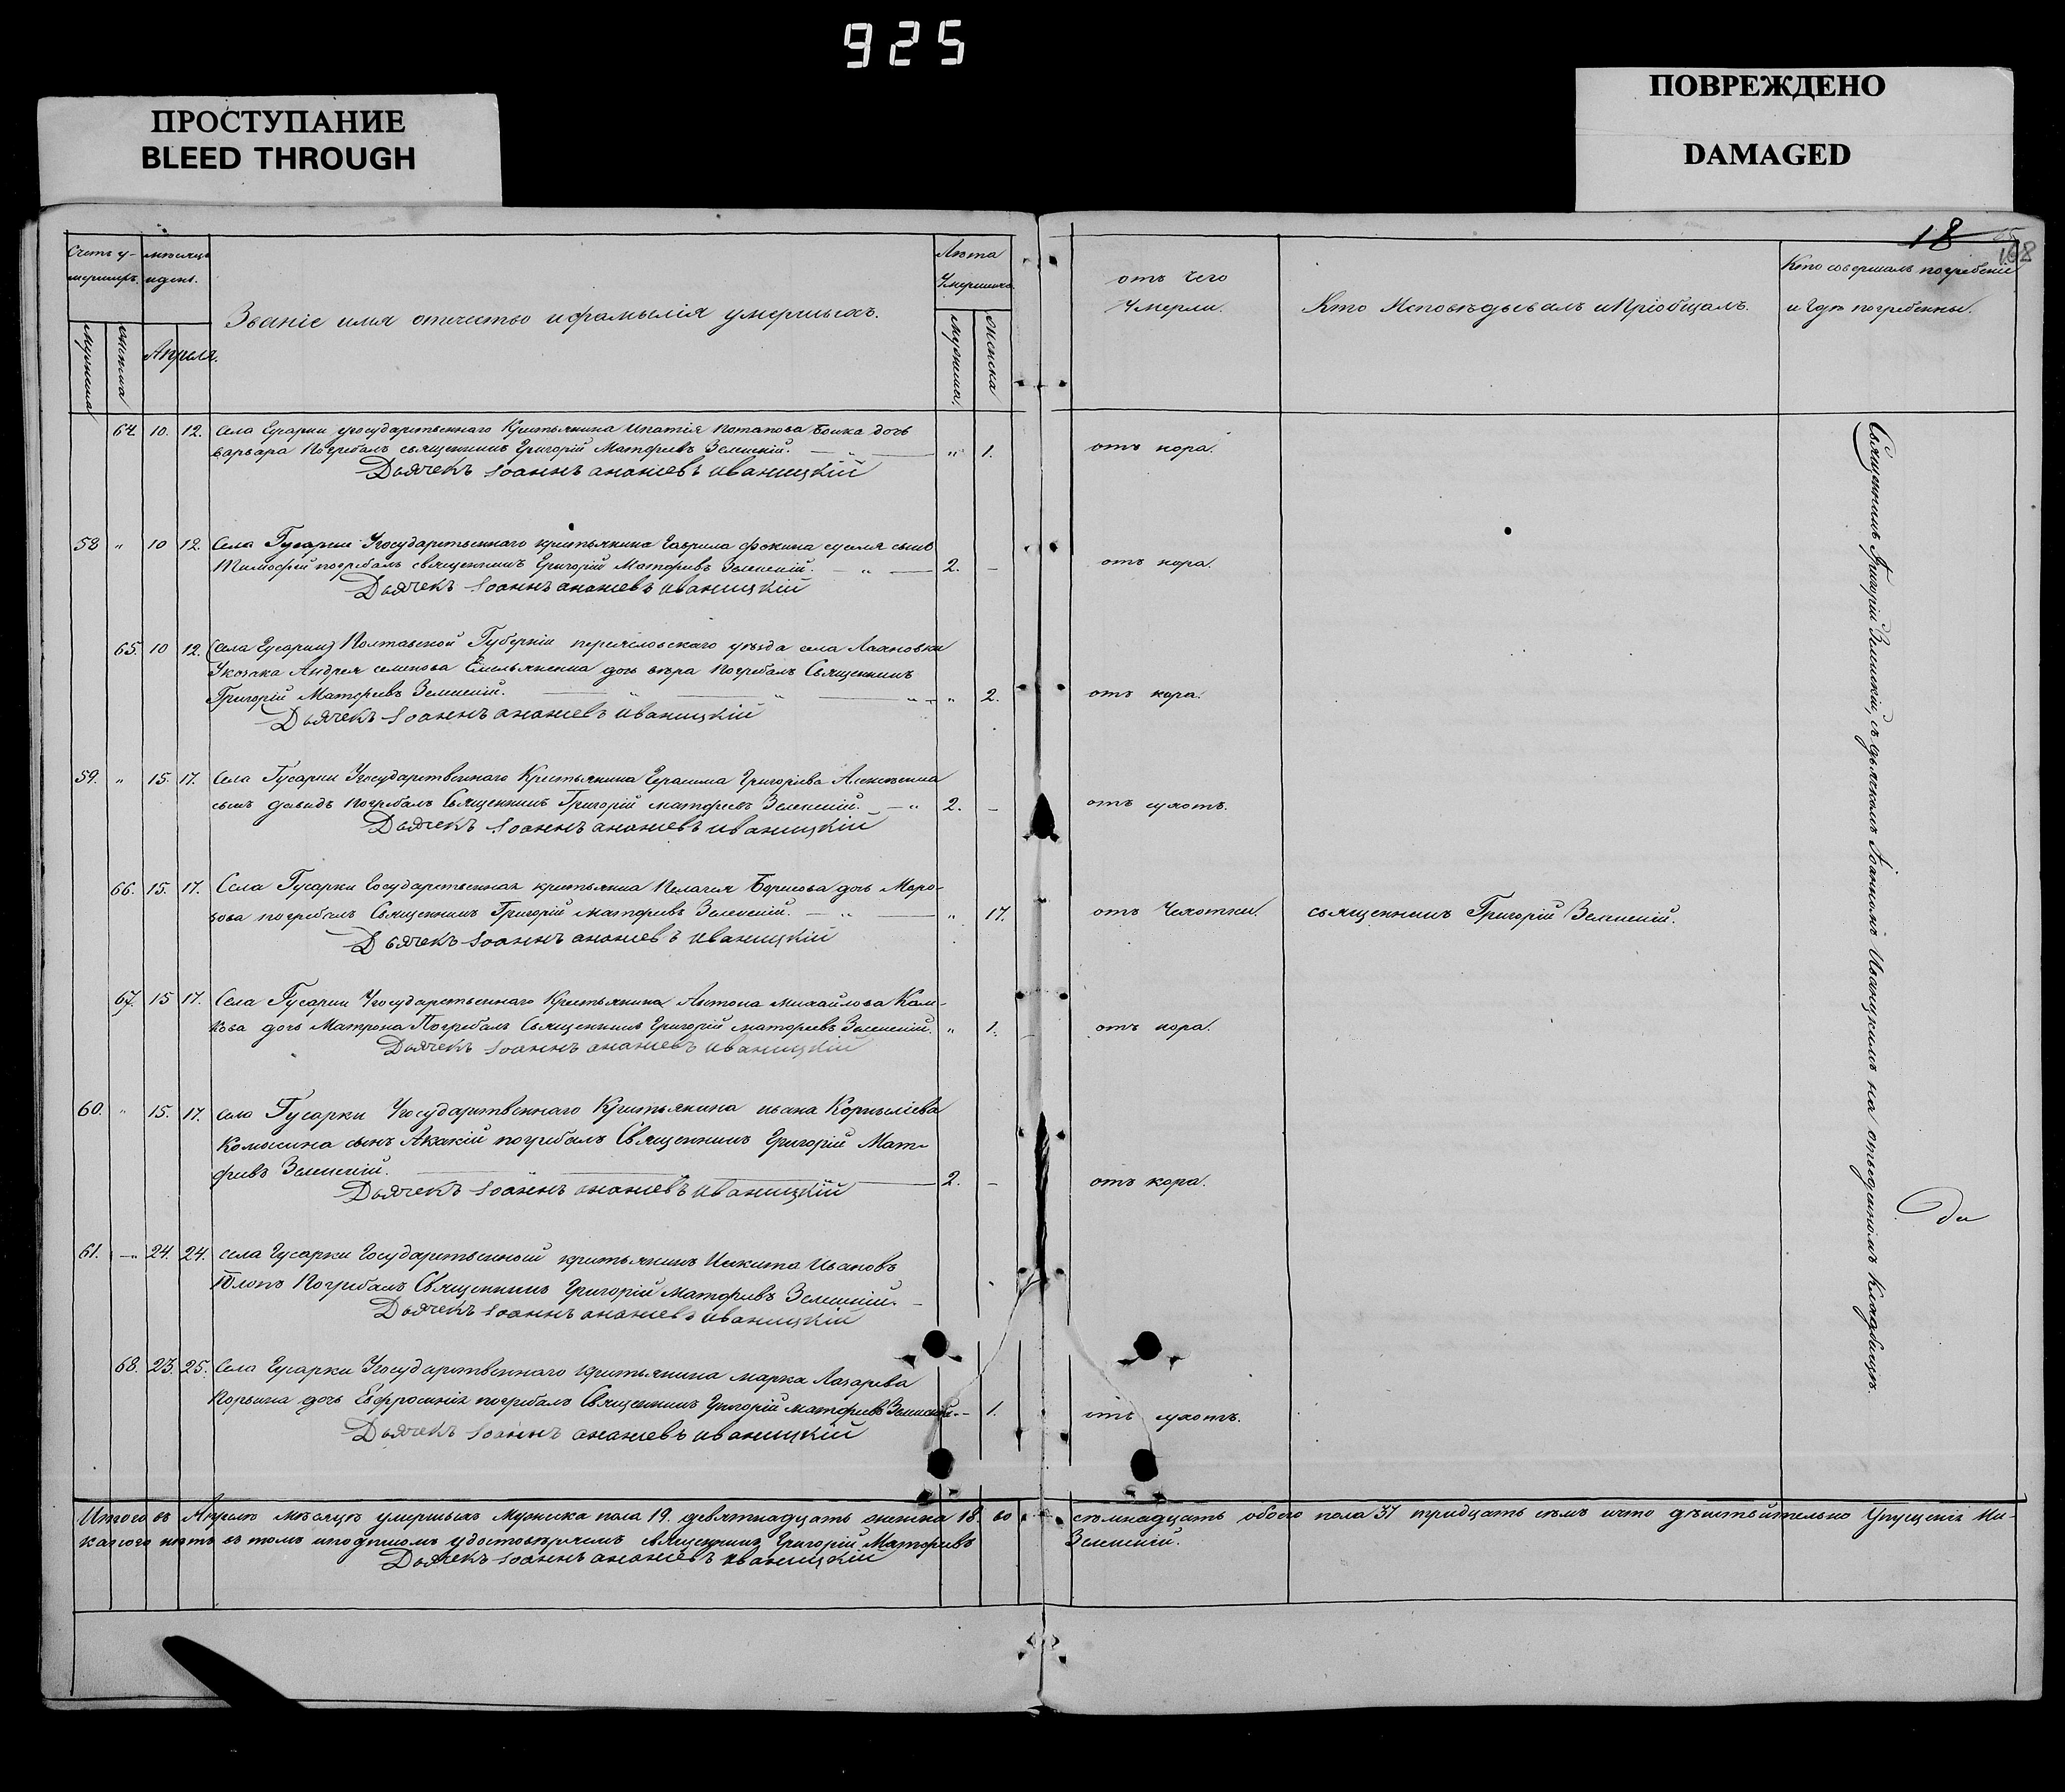 925
ПРОСТУПАНИЕ
BLEED THROUGH
ПОВРЕЖДЕНО
DAMAGED
18
168
Счетъ у-
мершихъ.
мѣсяцъ
и день.
Мужеска
женска
Апреля.
Званіе имя отчество и фамылія умершихъ.
Лѣта
Умершихъ
Мужеска.
Женска
отъ чего
Умерли.
Кто Исповѣдывалъ и Пріобщалъ.
Кто совершалъ погребеніе
и Гдѣ погребенны.
64. 10. 12. Села Гусарки государственнаго Крестьянина Ипатія Потапова Бойка дочь
варвара Погребалъ священникъ Григорій Матфеевъ Зеленскій. — „ — „ 1. отъ кора.
Дьячекъ Іоаннъ ананіевъ иваницкій
58 „ 10 12. Села Гусарки Угосударственнаго крестьянина Гаврила фокина сынъ
Тимофей погребалъ священникъ Григорій Матфеевъ Зеленскій. — „ — 2. – отъ кора.
Дьячекъ Іоаннъ ананіевъ иваницкій
65. 10 12. (села Гусарки) Полтавской Губерніи переясловскаго уезда села
Укозака Андрея семенова Емельяненка дочь вѣра Погребалъ Священникъ
Григорій Матфеевъ Зеленскій. — „ — „ — „ 2. отъ кора.
Дьячекъ Іоаннъ ананіевъ иваницкій
59. „ 15. 17. Села Гусарки Угосударственнаго Крестьянина Герасима Григоріева
сынъ давидъ Погребалъ Священникъ Григорій матфеевъ Зеленскій. — „ 2. – отъ сухотъ.
Дьячекъ Іоаннъ ананіевъ иваницкій
66. 15. 17. Села Гусарки Государственная крестьянка Пелагея Борисова дочь Моро-
зова погребалъ Священникъ Григорій матфеевъ Зеленскій. — „ — „ 17. отъ Чехотки. священникъ Григорій Зеленскій.
Дьячекъ Іоаннъ ананіевъ иваницкій
67. 15 17. Села Гусарки Угосударственнаго Крестьянина Антона михайлова
дочь Матрона Погребалъ Священникъ Григорій матфеевъ Зеленскій. „ 1. отъ кора.
Дьячекъ Іоаннъ ананіевъ иваницкій
60. „ 15. 17. села Гусарки Угосударственнаго Крестьянина ивана Корныліева
сынъ Акакій погребалъ Священникъ Григорій Мат-
феевъ Зеленскій. — „ — „ — 2. – отъ кора.
Дьячекъ Іоаннъ ананіевъ иваницкій
61. – „ 24. 24. села Гусарки Государственной крестьянинъ Никита Ивановъ
Погребалъ Священникъ Григорій Матфеевъ Зеленскій. –
Дьячекъ Іоаннъ ананіевъ иваницкій
68. 23. 25. Села Гусарки Угосударственнаго крестьянина марка Лазарева
дочь Евфросинія погребалъ Священникъ Григорій матфеевъ Зеленскій. – 1. отъ сухотъ.
Дьячекъ Іоаннъ ананіевъ иваницкій
Священникъ Григорій Зеленскій, съ дьячкомъ Іоанномъ Иваницкимъ на отведенномъ кладбищѣ.
Итого въ Апрелѣ мѣсяцѣ умершихъ Мужеска пола 19. девятнадцать женска 18. во семнадцать обоего пола 37 тридцать семъ ичто дѣиствительно Упущенія Ни-
какого нетъ въ томъ иподписомъ удостовѣряемъ священникъ Григорій Матфеевъ Зеленскій.
Дьячекъ Іоаннъ ананіевъ иваницкій